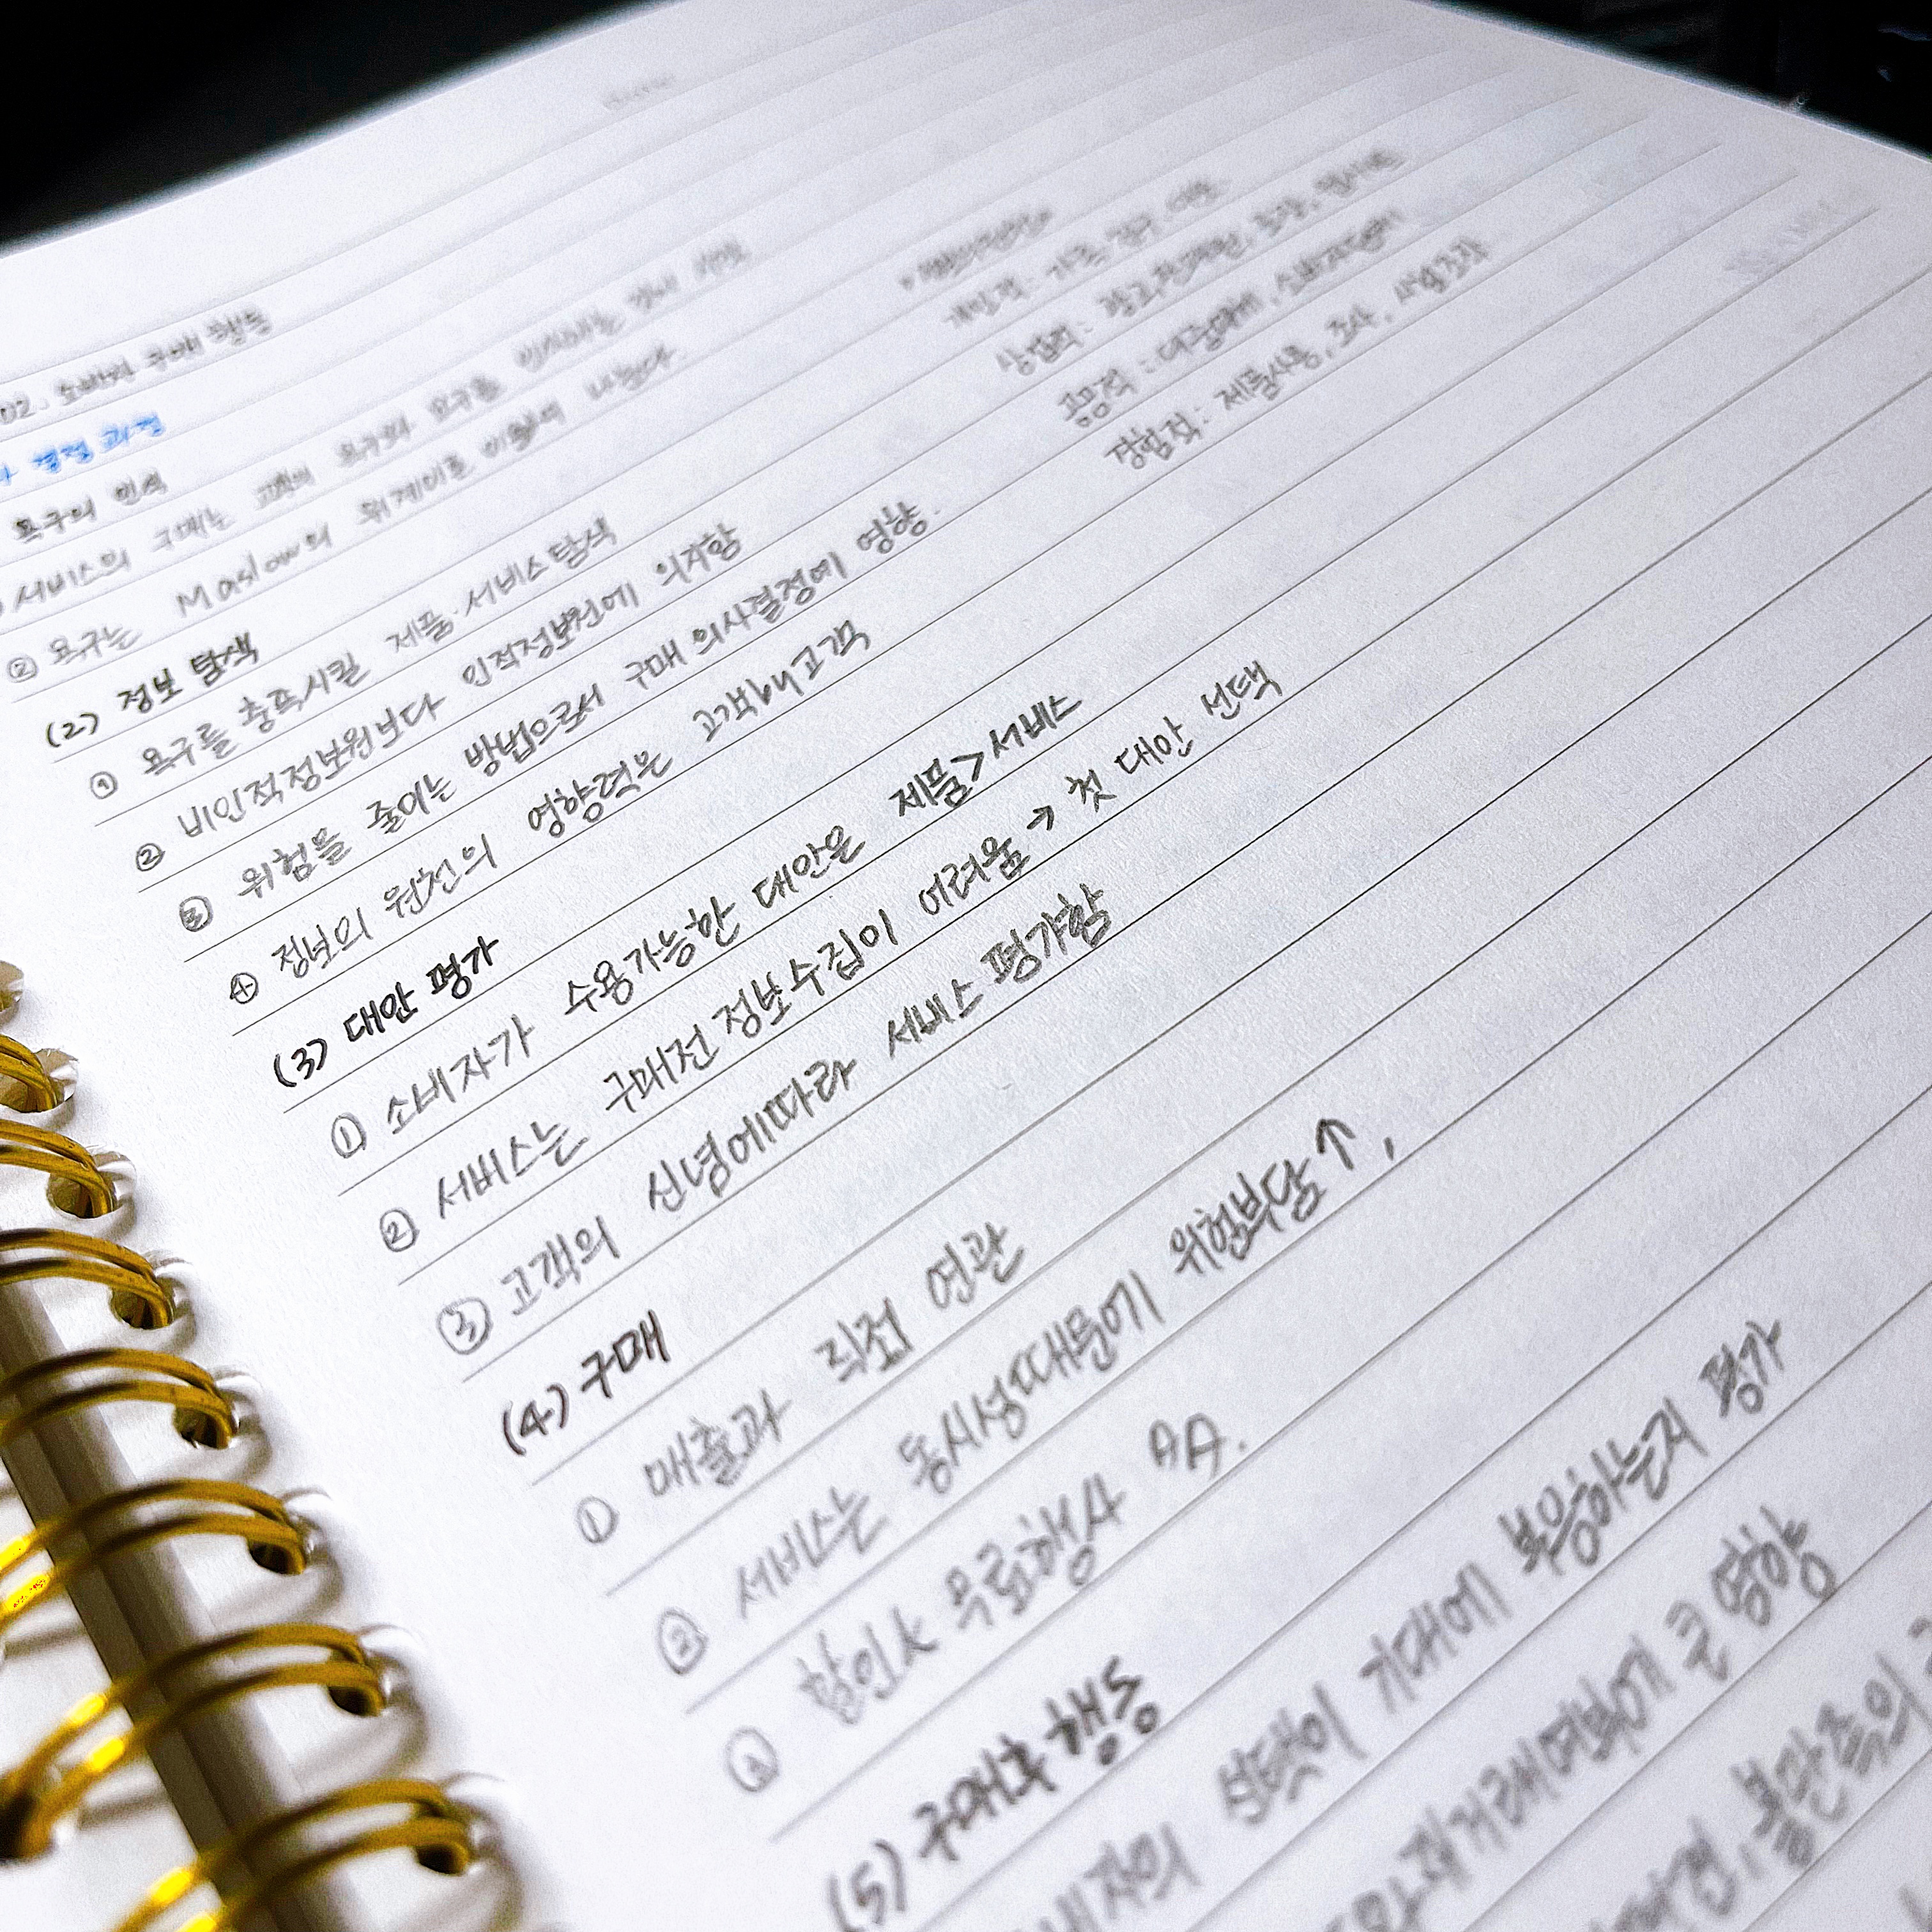 02. 소비자 구매 행동
결정 과정
욕구의 인식
서비스의 구매는 고객의 욕구와 요구를 인식하는
② 욕구는 Maslow의 위계이론 이용하여 나눈다.
개인적: 가족, 친구, 이웃
상업적: 광고, 판매원, 포장,
공공적: 대중매체, 소비자단체
경험적: 제품사용, 조사,
(2) 정보 탐색
① 욕구를 충족시킬 제품·서비스 탐색
② 비인적정보원보다 인적정보원에 의지함
③ 위험을 줄이는 방법으로서 구매 의사결정에 영향.
④ 정보의 원천의 영향력은 고객by고객
(3) 대안 평가
① 소비자가 수용가능한 대안은 제품>서비스
② 서비스는 구매전 정보수집이 어려움 → 첫 대안 선택
③ 고객의 신념에따라 서비스 평가함
(4) 구매
① 매출과 직접 연관
② 서비스는 동시성때문에 위험부담↑,
할인 무료행사
(5) 구매후 행동
선택이 기대에 부응하는지 평가
재거래여부에 큰 영향
불만족의